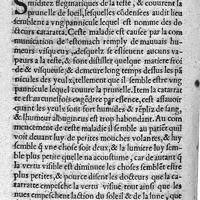 miditez flegmatiques de la teste, & couurent la
prunelle de loeil, lesquelles cõdensées audit lieu
semblent a vng pannicule lequel est nomme des do-
cteurs cataratta. Ceste maladie est causee par la com
munication de lestomach remply de mauuais hu-
meurs visqueux, desquelz se esleuent aucuns va-
peurs a la teste, & sont distiller quelque matiere froi
de & visqueuse, & demeure long temps dessus les pã
nicules des yeulx, tellement que il semble estre vng
pannicule lequel couure la prunelle. Item la catarat
te est aucunesfois engẽdree par essence, est assauoir
quant les yeulx sont fort humides & réplis de sang,
& lhumeur albugineus est trop habondant. Au com
mencement de ceste maladie il semble au patiẽt quil
voit deuant luy de petites mouches volantes, & luy
semble q̃ vne chose soit deux, & la lumiere luy sem-
ble plus petite quelle na acoustume, car de autant q̃
la vertu visible est diminuee les choses semblẽt estre
plus petites, & pource disent les docteurs que la ca-
tarratte empesche la vertu visiue tout ainsi que les
nues empeschent laction du soleil & de la lune, que